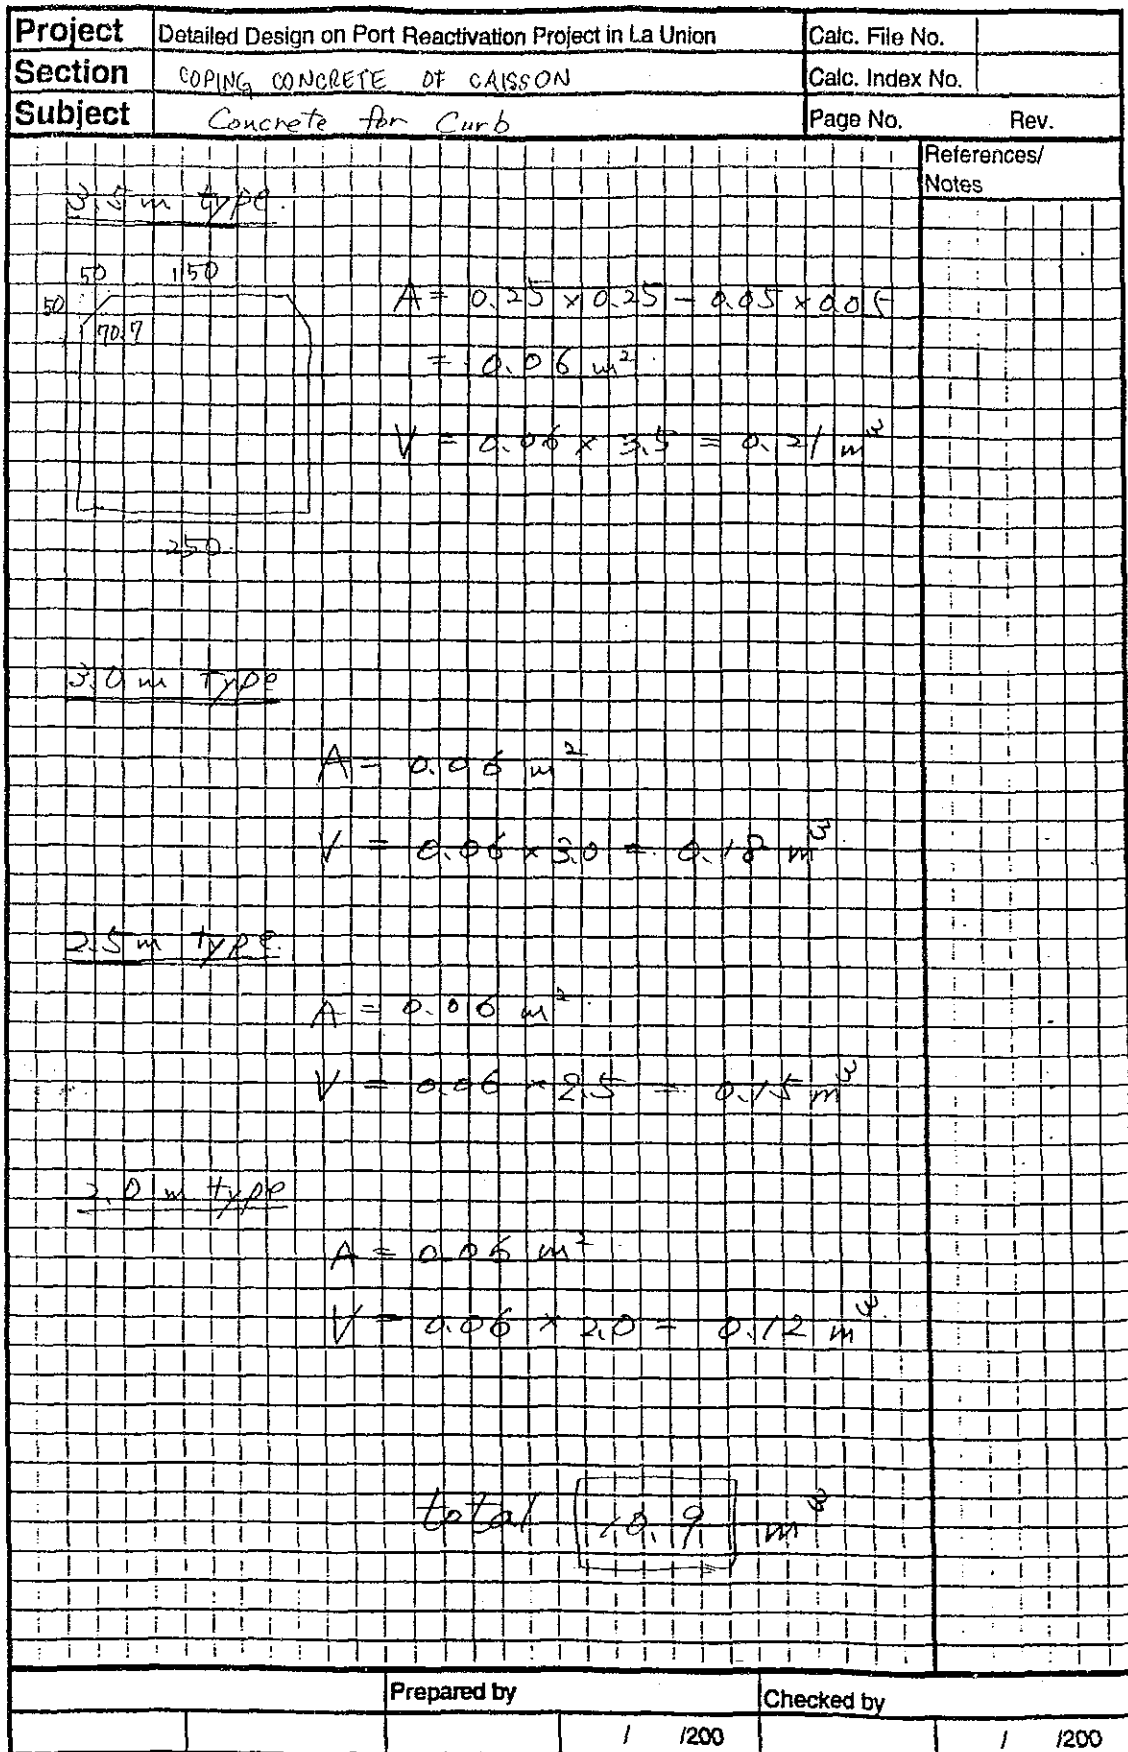 Project Detailed Design on Port Reactivation Project in La Union Calc. File No.
Section COPING CONCRETE OF CAISSON Calc. Index No.
Subject Concrete for Curb Page No. Rev.
References/
Notes
3.5 m type.
50 150
50
70.7
A = 0.25 × 0.25 - 0.05 × 0.05
= 0.06 m²
V = 0.06 × 3.5 = 0.21 m³
250
3.0 m type
A = 0.06 m²
V = 0.06 × 3.0 = 0.18 m³
2.5 m type.
A = 0.06 m²
V = 0.06 × 2.5 = 0.15 m³
2.0 m type
A = 0.06 m²
V = 0.06 × 2.0 = 0.12 m³
total 10.9 m³
Prepared by Checked by
/ /200 / /200